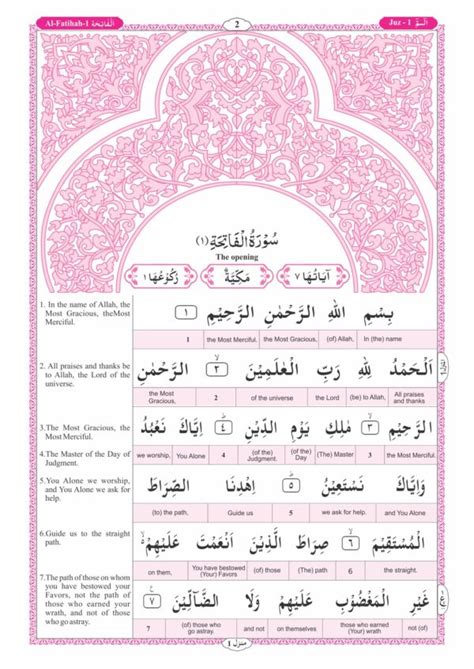 Al-Fatihah-1 اَلْفَاتِحَة
2
Juz - 1 الٓمّٓ ١
سُوْرَةُ الْفَاتِحَةِ (١)
The opening
اٰيَاتُهَا ٧ مَكِّيَّةٌ رُكُوْعُهَا ١
1. In the name of Allah, the
Most Gracious, theMost
Merciful.
بِسْمِ اللّٰهِ الرَّحْمٰنِ الرَّحِيْمِ ١
1 the Most Merciful. the Most Gracious, (of) Allah, In (the) name
2. All praises and thanks be
to Allah, the Lord of the
universe.
اَلْحَمْدُ لِلّٰهِ رَبِّ الْعٰلَمِيْنَ ٢ الرَّحْمٰنِ
the Most Gracious, 2 of the universe the Lord (be) to Allah, All praises and thanks
3.The Most Gracious, the
Most Merciful.
4.The Master of the Day of
Judgment.
الرَّحِيْمِ ٣ مٰلِكِ يَوْمِ الدِّيْنِ ٤ اِيَّاكَ نَعْبُدُ
we worship, You Alone 4 (of) the Judgment. (of) the Day (The) Master 3 the Most Merciful.
5.You Alone we worship,
and You Alone we ask for
help.
وَاِيَّاكَ نَسْتَعِيْنُ ٥ اِهْدِنَا الصِّرَاطَ
(to) the path, Guide us 5 we ask for help. and You Alone
6.Guide us to the straight
path.
الْمُسْتَقِيْمَ ٦ صِرَاطَ الَّذِيْنَ اَنْعَمْتَ عَلَيْهِمْ
on them, You have bestowed (Your) Favors (of) those (The) path 6 the straight.
7.The path of those on whom
you have bestowed Your
Favors, not the path of
those who earned your
wrath, and not of those
who go astray.
غَيْرِ الْمَغْضُوْبِ عَلَيْهِمْ وَلَا الضَّآلِّيْنَ ٧
7 (of) those who go astray. and not on themselves those who earned (Your) wrath not (of)
منزل ١